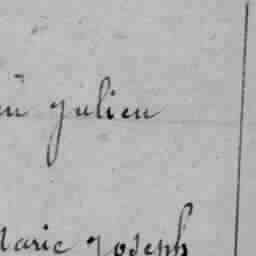 Julien
Marie Joseph